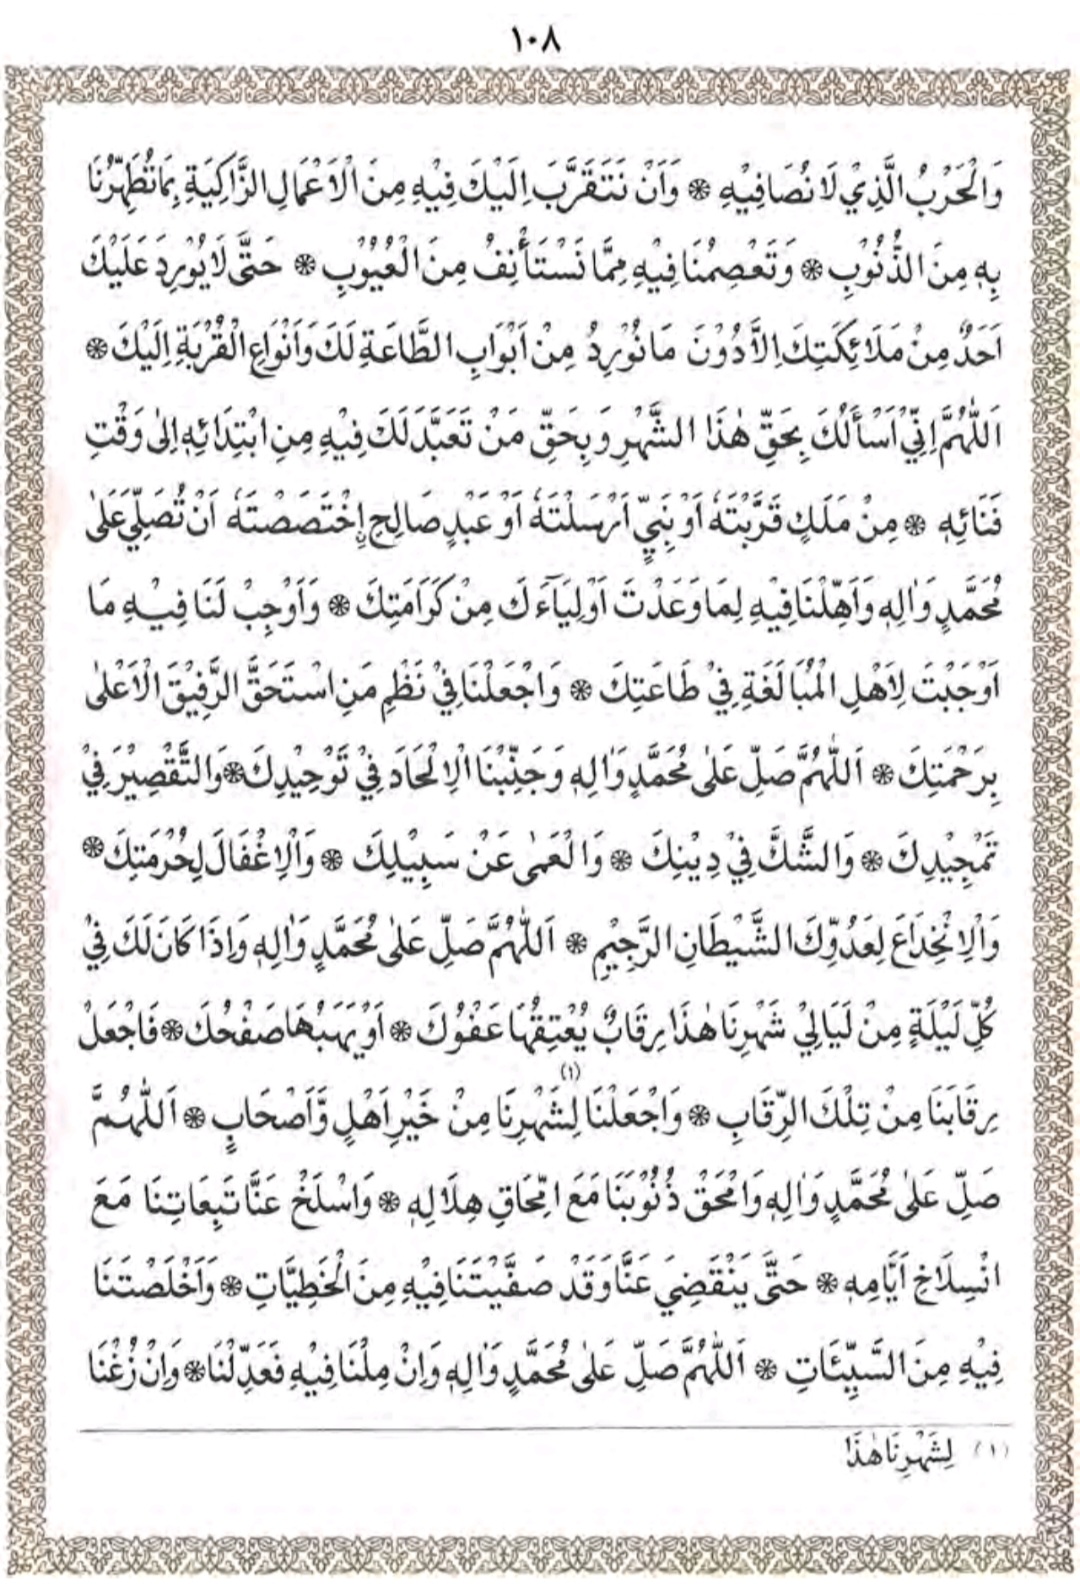 ١٠٨
وَالْحَرْبُ الَّذِيْ لَا نُصَافِيْهِ ❊ وَاَنْ نَتَقَرَّبَ اِلَيْكَ فِيْهِ مِنَ الْاَعْمَالِ الزَّاكِيَةِ بِمَا تُطَهِّرُنَا
بِهٖ مِنَ الذُّنُوْبِ ❊ وَتَعْصِمُنَا فِيْهِ مِمَّا نَسْتَأْنِفُ مِنَ الْعُيُوْبِ ❊ حَتّٰى لَا يُوْرِدَ عَلَيْكَ
اَحَدٌ مِنْ مَلَائِكَتِكَ اِلَّا دُوْنَ مَا نُوْرِدُ مِنْ اَبْوَابِ الطَّاعَةِ لَكَ وَاَنْوَاعِ الْقُرْبَةِ اِلَيْكَ ❊
اَللّٰهُمَّ اِنِّيْ اَسْأَلُكَ بِحَقِّ هٰذَا الشَّهْرِ وَبِحَقِّ مَنْ تَعَبَّدَ لَكَ فِيْهِ مِنِ ابْتِدَائِهٖ اِلٰى وَقْتِ
فَنَائِهٖ ❊ مِنْ مَلَكٍ قَرَّبْتَهٗ اَوْ نَبِيٍّ اَرْسَلْتَهٗ اَوْ عَبْدٍ صَالِحٍ اِخْتَصَصْتَهٗ اَنْ تُصَلِّيَ عَلٰى
مُحَمَّدٍ وَاٰلِهٖ وَاَهِّلْنَا فِيْهِ لِمَا وَعَدْتَ اَوْلِيَآءَكَ مِنْ كَرَامَتِكَ ❊ وَاَوْجِبْ لَنَا فِيْهِ مَا
اَوْجَبْتَ لِاَهْلِ الْمُبَالَغَةِ فِيْ طَاعَتِكَ ❊ وَاجْعَلْنَا فِيْ نَظْمِ مَنِ اسْتَحَقَّ الرَّفِيْقَ الْاَعْلٰى
بِرَحْمَتِكَ ❊ اَللّٰهُمَّ صَلِّ عَلٰى مُحَمَّدٍ وَاٰلِهٖ وَجَنِّبْنَا الْاِلْحَادَ فِيْ تَوْحِيْدِكَ ❊ وَالتَّقْصِيْرَ فِيْ
تَمْجِيْدِكَ ❊ وَالشَّكَّ فِيْ دِيْنِكَ ❊ وَالْعَمٰى عَنْ سَبِيْلِكَ ❊ وَالْاِغْفَالَ لِحُرْمَتِكَ ❊
وَالْاِنْخِدَاعَ لِعَدُوِّكَ الشَّيْطَانِ الرَّجِيْمِ ❊ اَللّٰهُمَّ صَلِّ عَلٰى مُحَمَّدٍ وَاٰلِهٖ وَاِذَا كَانَ لَكَ فِيْ
كُلِّ لَيْلَةٍ مِنْ لَيَالِيْ شَهْرِنَا هٰذَا رِقَابٌ يُعْتِقُهَا عَفْوُكَ ❊ اَوْ يَهَبُهَا صَفْحُكَ ❊ فَاجْعَلْ
رِقَابَنَا مِنْ تِلْكَ الرِّقَابِ ❊ وَاجْعَلْنَا لِشَهْرِنَا (١) مِنْ خَيْرِ اَهْلٍ وَّاَصْحَابٍ ❊ اَللّٰهُمَّ
صَلِّ عَلٰى مُحَمَّدٍ وَاٰلِهٖ وَامْحَقْ ذُنُوْبَنَا مَعَ امِّحَاقِ هِلَالِهٖ ❊ وَاسْلَخْ عَنَّا تَبِعَاتِنَا مَعَ
انْسِلَاخِ اَيَّامِهٖ ❊ حَتّٰى يَنْقَضِيَ عَنَّا وَقَدْ صَفَّيْتَنَا فِيْهِ مِنَ الْخَطِيَّاتِ ❊ وَاَخْلَصْتَنَا
فِيْهِ مِنَ السَّيِّئَاتِ ❊ اَللّٰهُمَّ صَلِّ عَلٰى مُحَمَّدٍ وَاٰلِهٖ وَاِنْ مِلْنَا فِيْهِ فَعَدِّلْنَا ❊ وَاِنْ زُغْنَا
(١) لِشَهْرِنَا هٰذَا